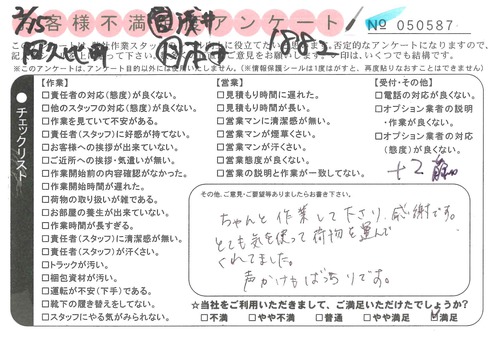 お客様不満 アンケート
№ 050587
2/15
1882
※このアンケートは、アンケート目的以外には使用いたしません。(※情報保護シールは1度はがすと、再度貼りなおすことはできません)
チェックリスト
【作業】
□責任者の対応(態度)が良くない。
□他のスタッフの対応(態度)が良くない。
□作業を見ていて不安がある。
□責任者(スタッフ)に好感が持てない。
□お客様への挨拶が出来ていない。
□ご近所への挨拶・気遣いが無い。
□作業開始前の内容確認がなかった。
□作業開始時間が遅れた。
□荷物の取り扱いが雑である。
□お部屋の養生が出来ていない。
□作業時間が長すぎる。
□責任者(スタッフ)に清潔感が無い。
□責任者(スタッフ)が汗くさい。
□トラックが汚い。
□梱包資材が汚い。
□運転が不安(下手)である。
□靴下の履き替えをしてない。
□スタッフにやる気がみられない。
【営業】
□見積もり時間に遅れた。
□見積もり時間が長い。
□営業マンに清潔感が無い。
□営業マンが煙草くさい。
□営業マンが汗くさい。
□営業態度が良くない。
□営業の説明と作業が一致してない。
【受付・その他】
□電話の対応が良くない。
□オプション業者の説明・作業が良くない。
□オプション業者の対応(態度)が良くない。
その他、ご意見・ご要望等ありましたらお書き下さい。
ちゃんと作業して下さり、感謝です。
とても気を使って荷物を運んで
くれてました。
声かけもばっちりです。
☆当社をご利用いただきまして、ご満足いただけたでしょうか?
□不満 □やや不満 □普通 □やや満足 □満足